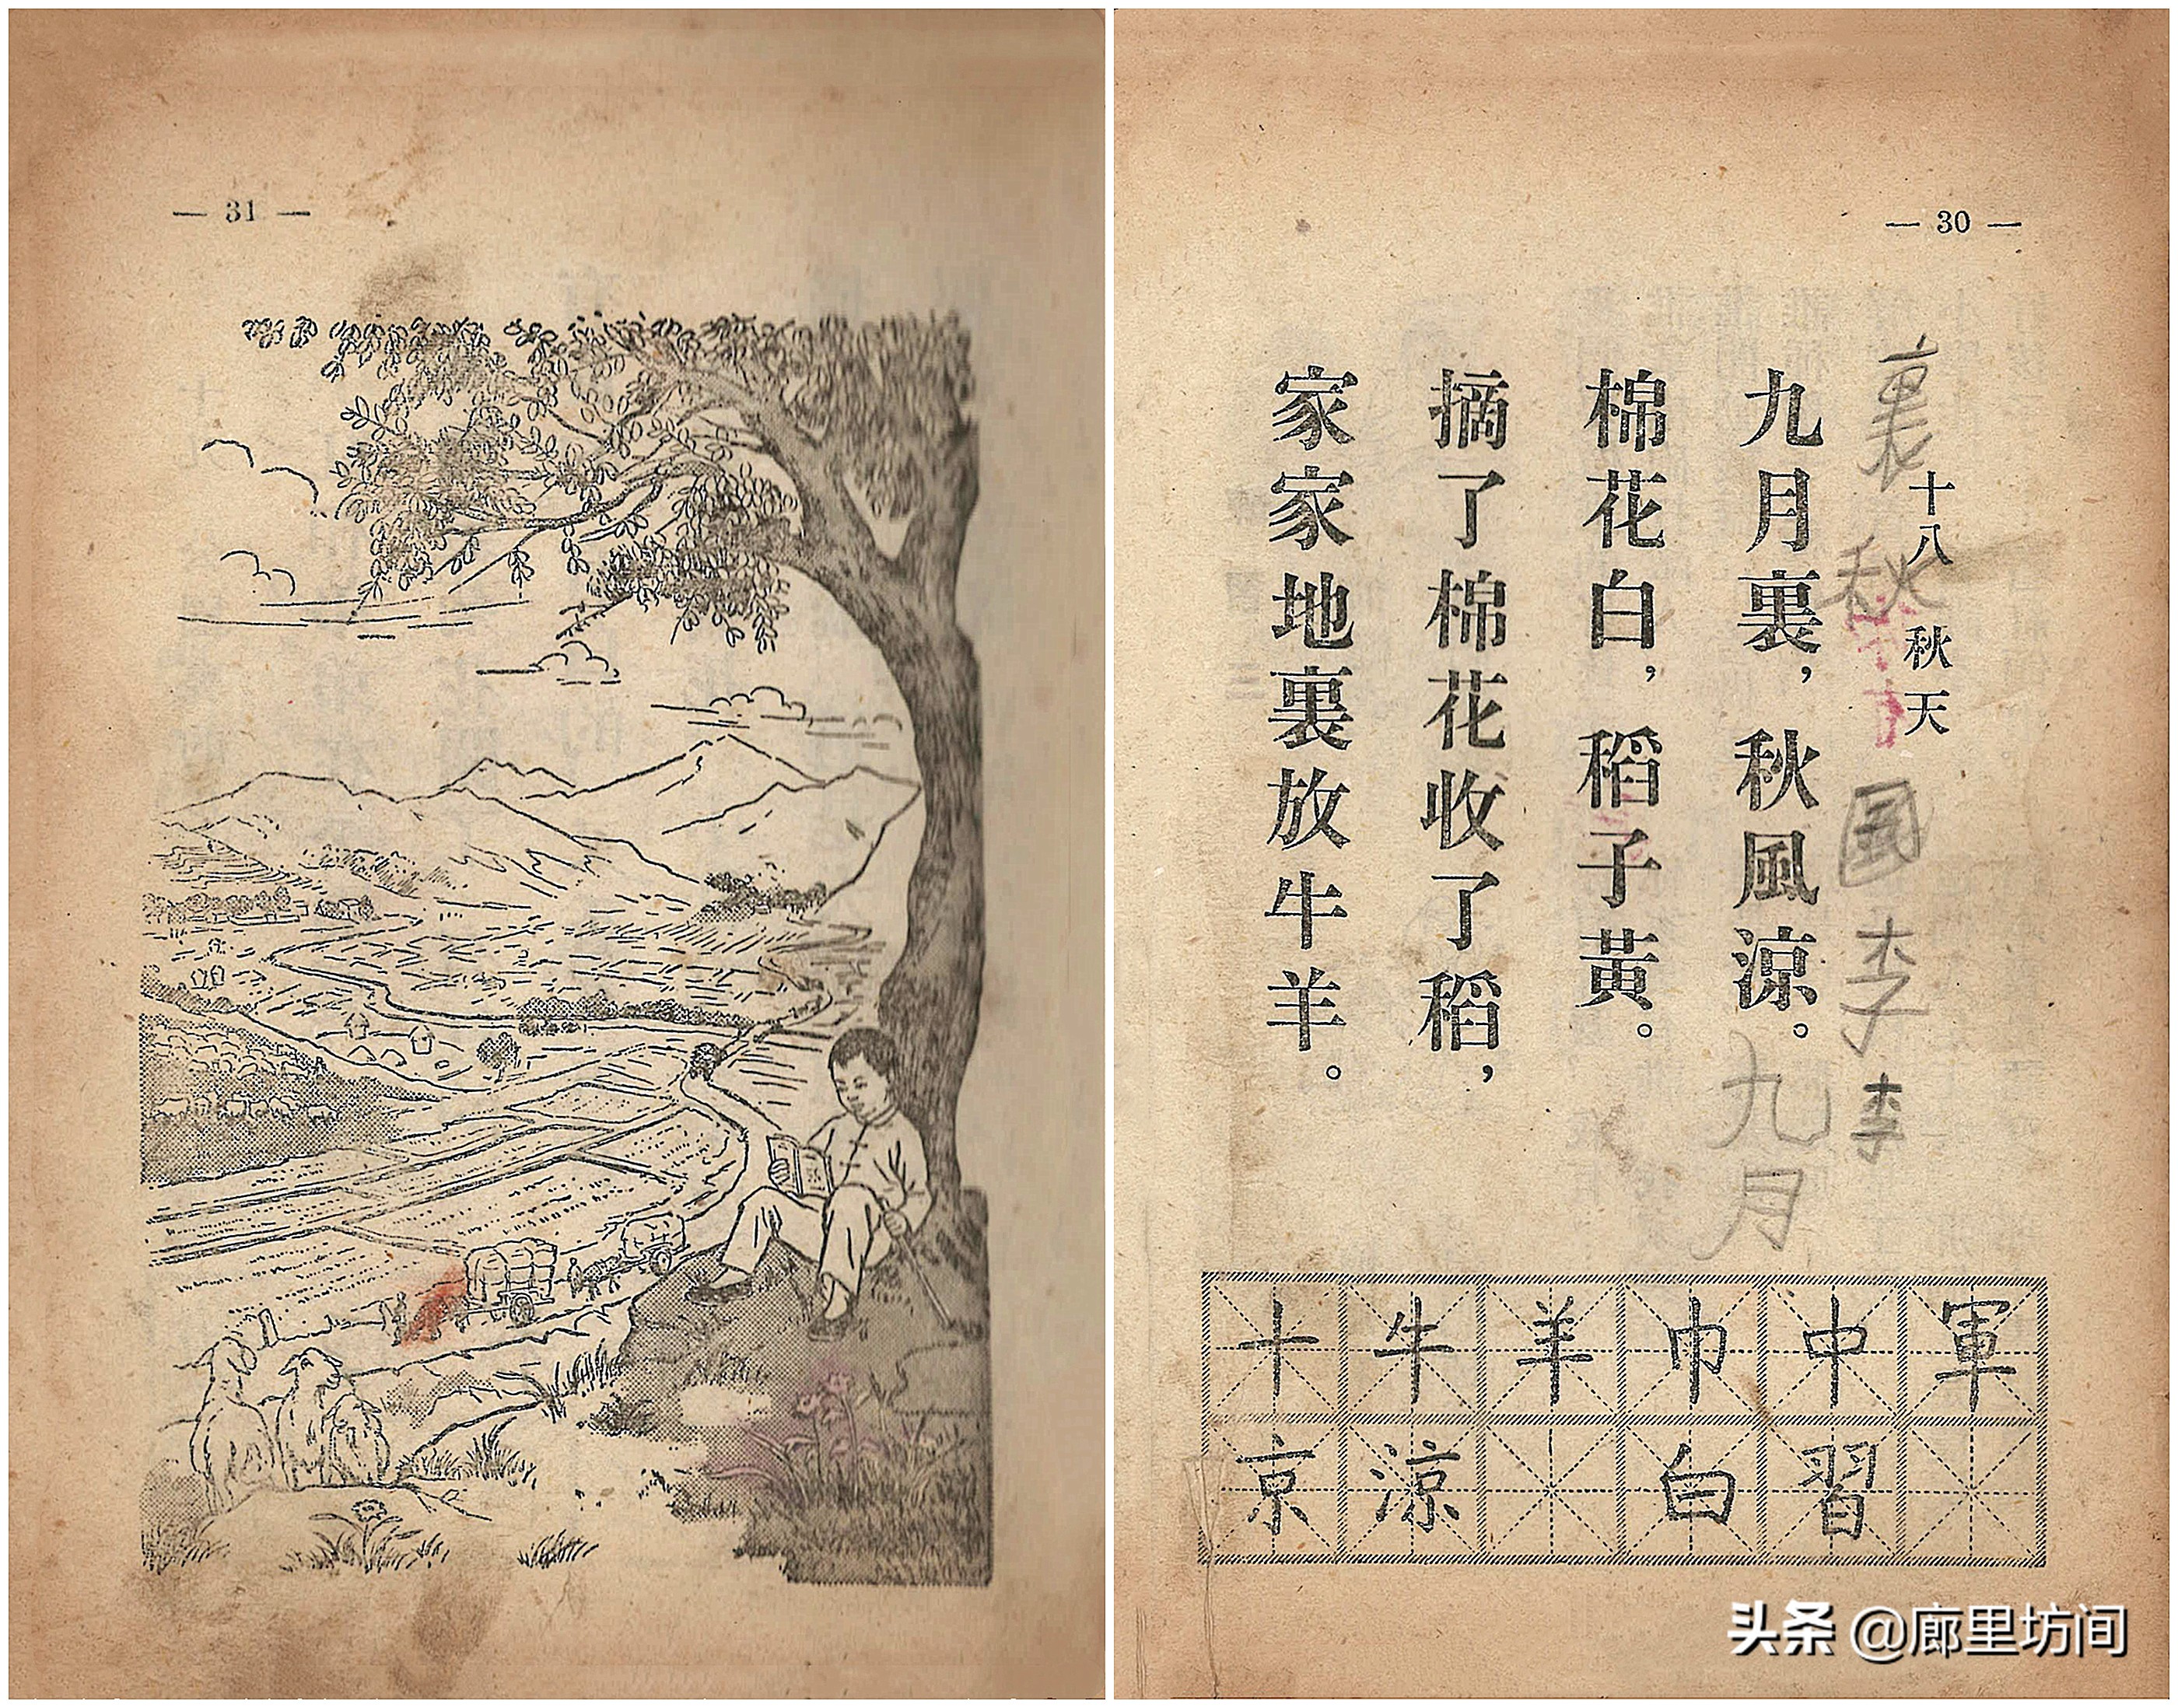 — 30 —
十八 秋天
裏 秋 李 李
九月
九月裏，秋風涼。
棉花白，稻子黃。
摘了棉花收了稻，
家家地裏放牛羊。
十牛羊巾中軍
京涼 白習
— 31 —
头条 @廊里坊间